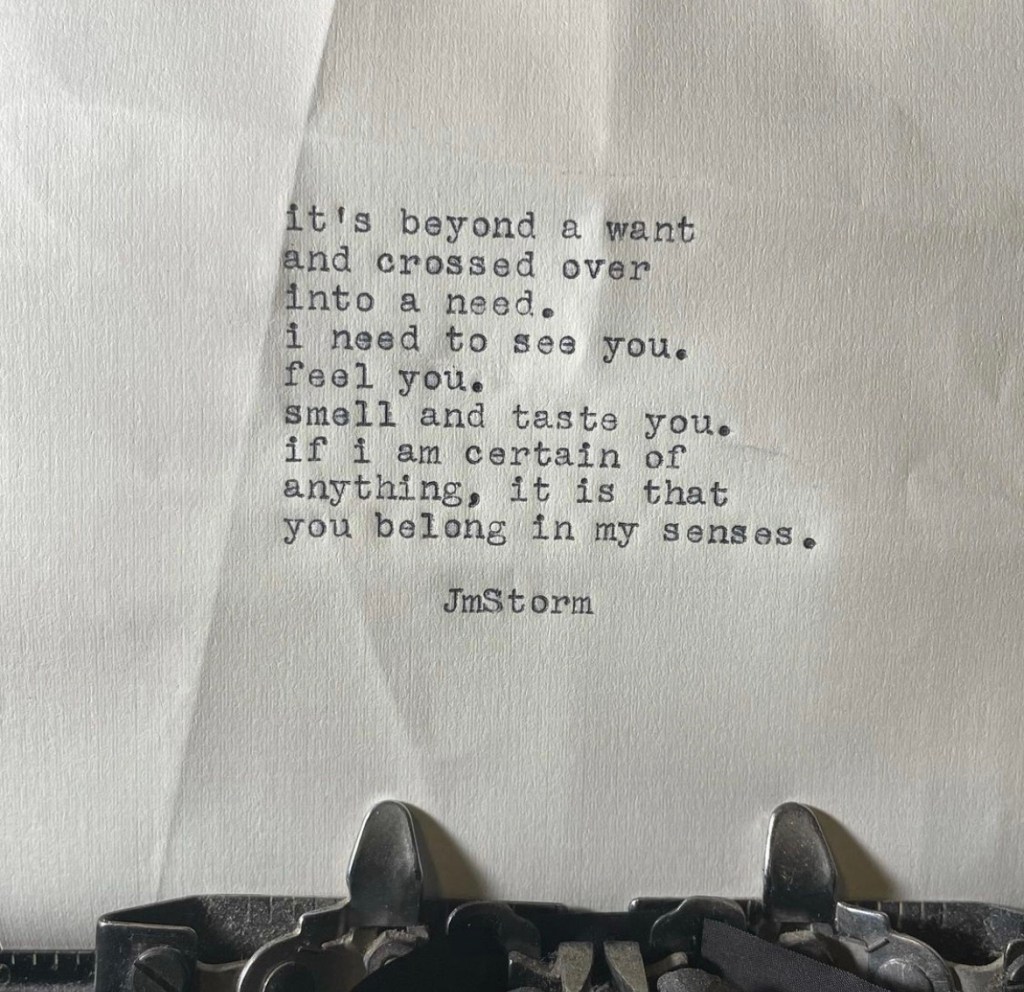 it's beyond a want
and crossed over
into a need.
i need to see you.
feel you.
smell and taste you.
if i am certain of
anything, it is that
you belong in my senses.
JmStorm